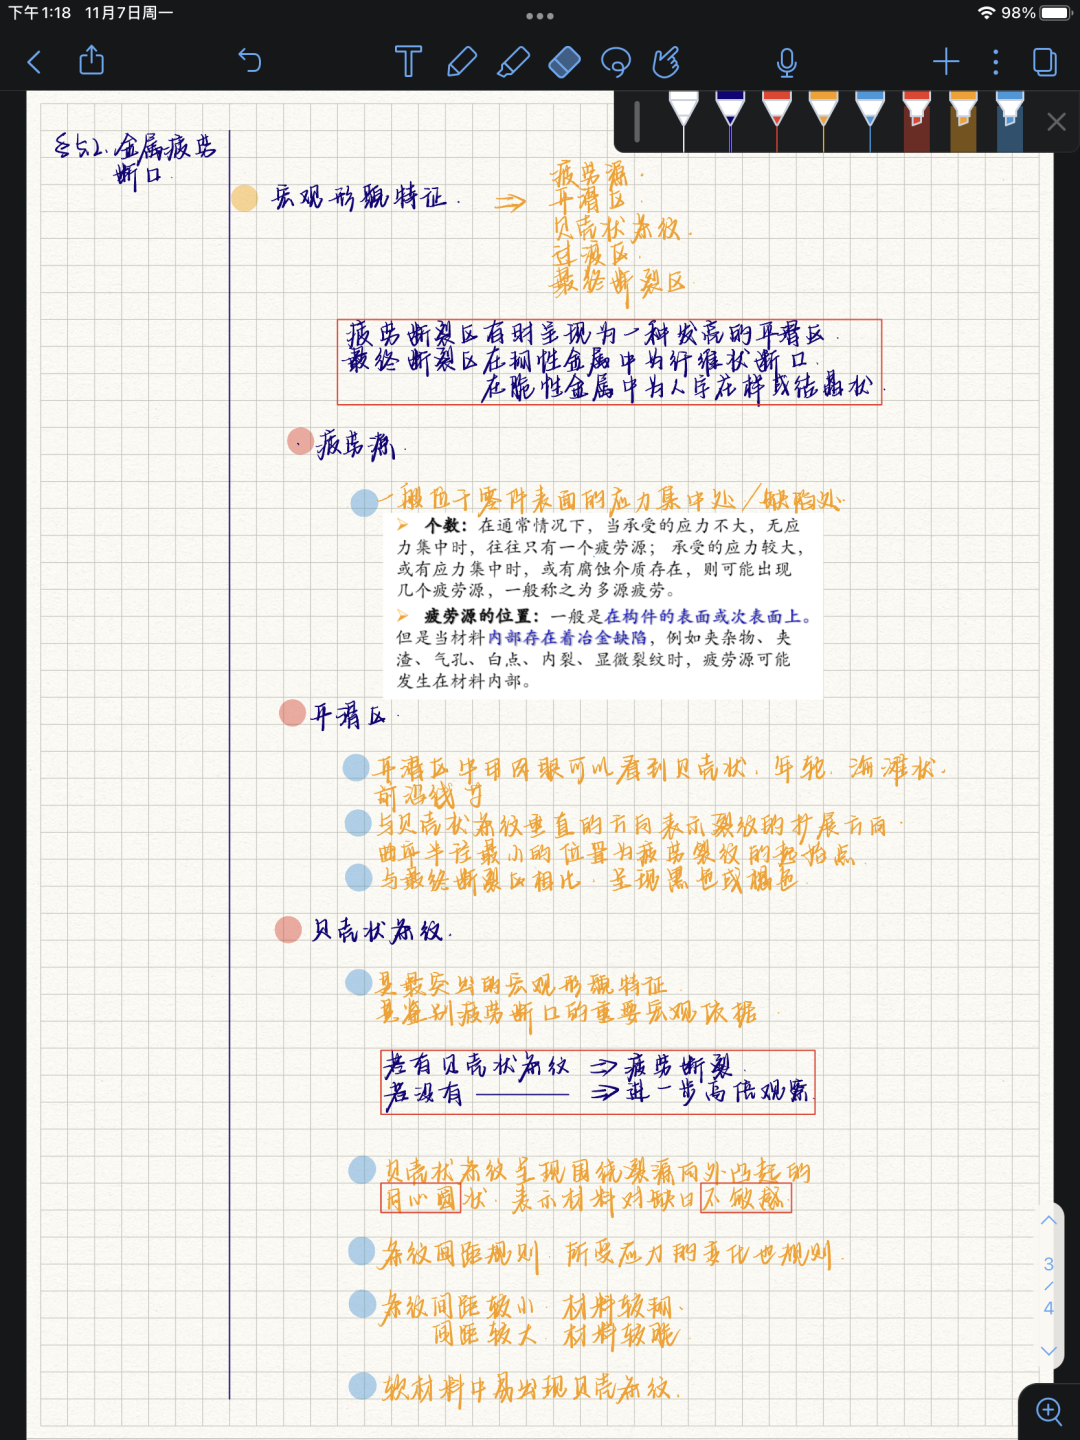 下午1:18 11月7日周一
98%
§5.2. 金属疲劳
断口.
宏观形貌特征.
⇒
疲劳源.
平滑区.
贝壳状条纹.
过渡区.
最终断裂区
疲劳断裂区有时呈现为一种发亮的平滑区.
最终断裂区在韧性金属中为纤维状断口.
在脆性金属中为人字花样或结晶状.
疲劳源.
一般位于零件表面的应力集中处/缺陷处.
➢ 个数：在通常情况下，当承受的应力不大，无应
力集中时，往往只有一个疲劳源； 承受的应力较大，
或有应力集中时，或有腐蚀介质存在，则可能出现
几个疲劳源，一般称之为多源疲劳。
➢ 疲劳源的位置：一般是在构件的表面或次表面上。
但是当材料内部存在着冶金缺陷，例如夹杂物、夹
渣、气孔、白点、内裂、显微裂纹时，疲劳源可能
发生在材料内部。
平滑区.
平滑区中用肉眼可以看到贝壳状. 年轮. 海滩状.
前沿线等
与贝壳状条纹垂直的方向表示裂纹的扩展方向.
曲率半径最小的位置为疲劳裂纹的起始点.
与最终断裂区相比. 呈现黑色或褐色.
贝壳状条纹.
是最突出的宏观形貌特征.
是鉴别疲劳断口的重要宏观依据
若有贝壳状条纹 ⇒ 疲劳断裂.
若没有 ———— ⇒ 进一步高倍观察.
贝壳状条纹呈现围绕裂源向外凸起的
同心圆状. 表示材料对缺口不敏感.
条纹间距规则. 所受应力的变化也规则.
条纹间距较小. 材料较韧.
间距较大. 材料较脆.
软材料中易出现贝壳条纹.
3
/
4